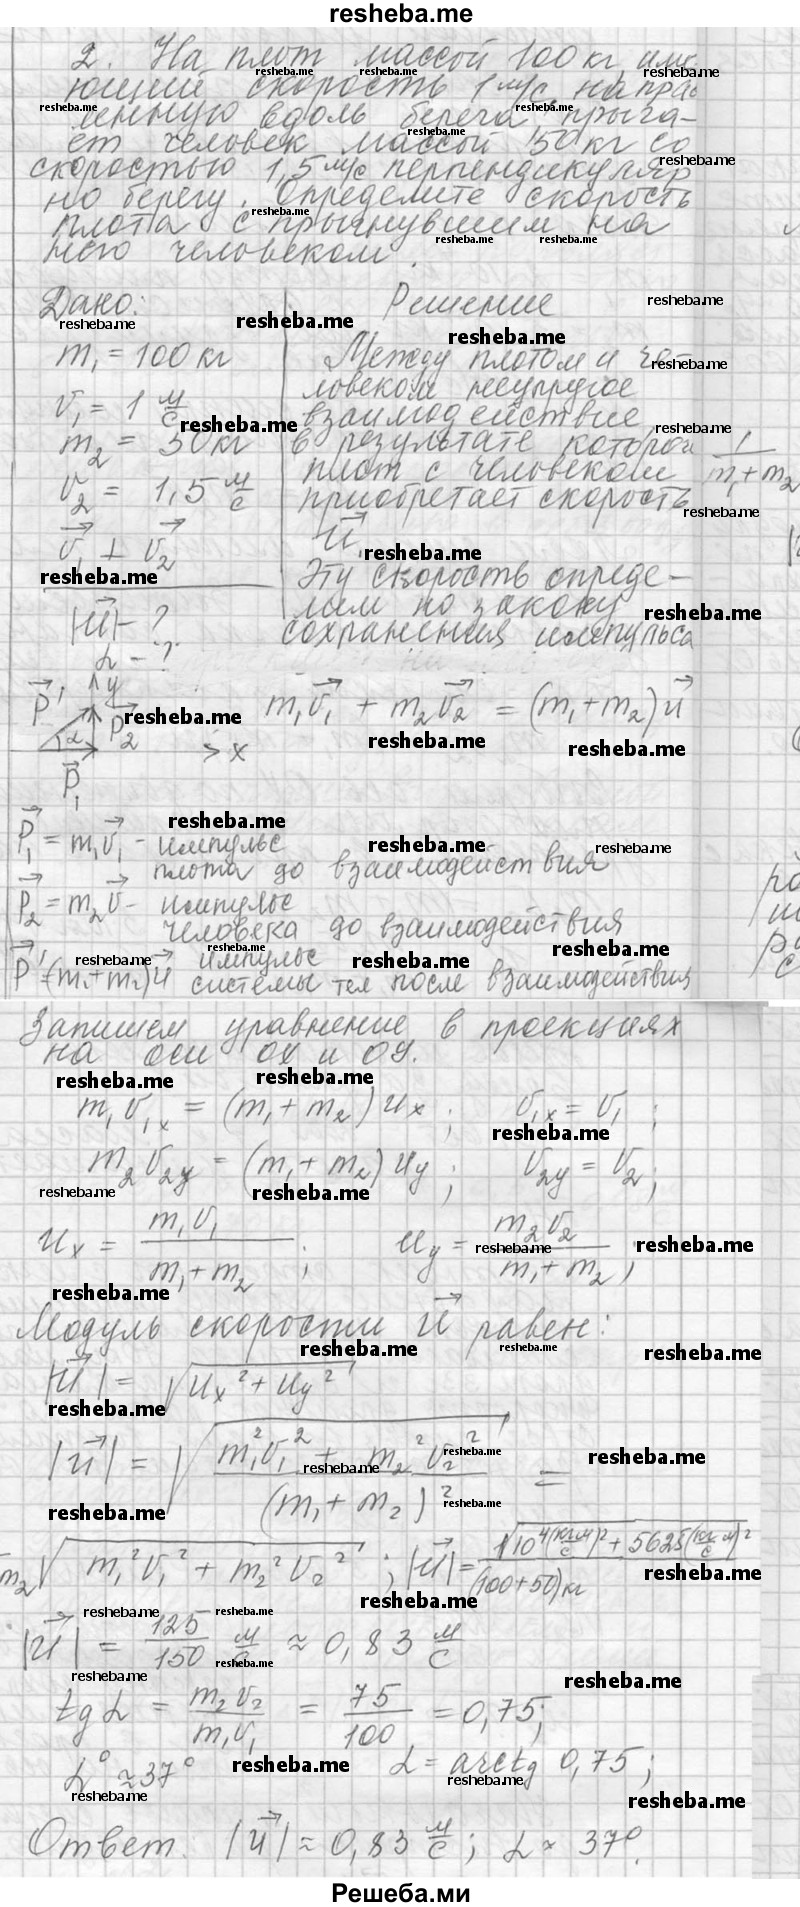 resheba.me
2. На плот массой 100 кг име-
ющий скорость 1 м/с направ
ленную вдоль берега прыга-
ет человек массой 50 кг со
скоростью 1,5 м/с перпендикуляр
но берегу. Определите скорость
плота с прыгнувшим на
него человеком.
Дано:
m₁ = 100 кг
v₁ = 1 м/с
m₂ = 50 кг
v₂ = 1,5 м/с
v₁ ⊥ v₂
|u| - ?
α - ?
Решение
Между плотом и че-
ловеком неупругое
взаимодействие
в результате которого
плот с человеком
приобретает скорость
u.
Эту скорость опреде-
лим по закону
сохранения импульса
1/(m₁+m₂)
m₁v₁ + m₂v₂ = (m₁+m₂)u
P' y P₂ α x P₁
P₁ = m₁v₁ - импульс
плота до взаимодействия
P₂ = m₂v - импульс
человека до взаимодействия
P' = (m₁+m₂)u импульс
системы тел после взаимодействия
Запишем уравнение в проекциях
на оси OX и OY.
m₁v₁ₓ = (m₁+m₂)uₓ; v₁ₓ = v₁;
m₂v₂y = (m₁+m₂)uy; v₂y = v₂;
uₓ = m₁v₁/(m₁+m₂); uy = m₂v₂/(m₁+m₂);
Модуль скорости u равен:
|u| = √(uₓ² + uy²)
|u| = √((m₁²v₁² + m₂²v₂²)/(m₁+m₂)²) =
m₂ √(m₁²v₁² + m₂²v₂²); |u| = √(10⁴(кг·м/с)² + 5625(кг·м/с)²)/(100+50)кг
|u| = 125/150 м/с ≈ 0,83 м/с
tg α = m₂v₂/m₁v₁ = 75/100 = 0,75;
α° ≈ 37° α = arctg 0,75;
Ответ: |u| ≈ 0,83 м/с; α ≈ 37°.
Решеба.ми